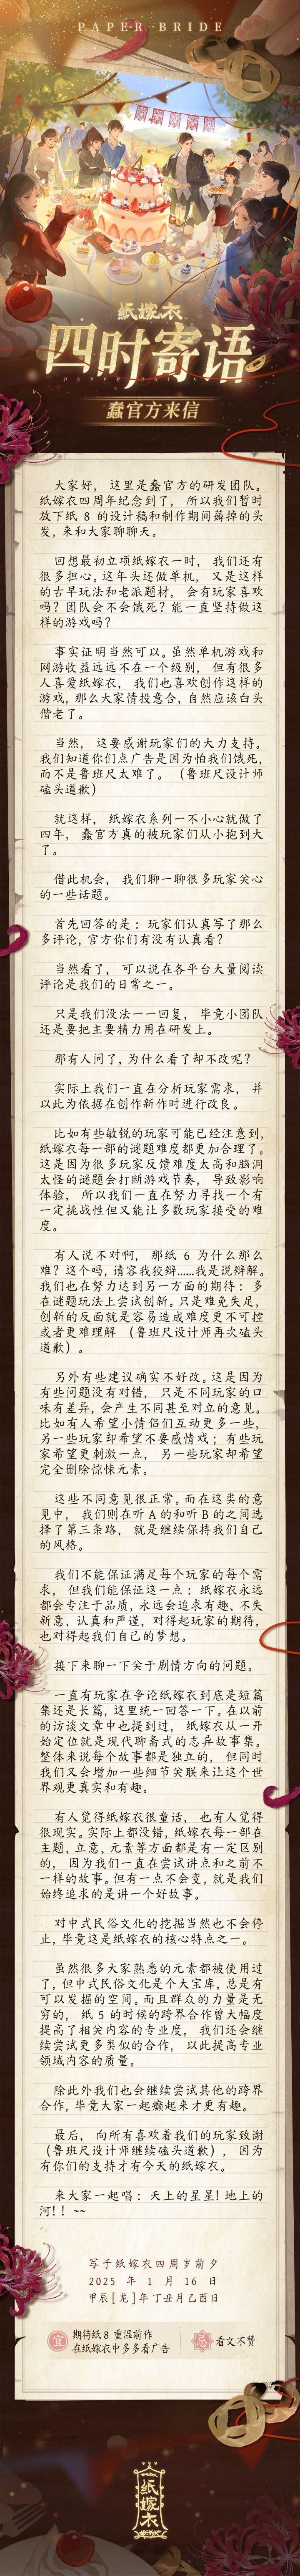 PAPER BRIDE
纸嫁衣
四时寄语
蠢官方来信
大家好，这里是蠢官方的研发团队。
纸嫁衣四周年纪念到了，所以我们暂时
放下纸 8 的设计稿和制作期间薅掉的头
发，来和大家聊聊天。
回想最初立项纸嫁衣一时，我们还有
很多担心。这年头还做单机，又是这样
的古早玩法和老派题材，会有玩家喜欢
吗？团队会不会饿死？能一直坚持做这
样的游戏吗？
事实证明当然可以。虽然单机游戏和
网游收益远远不在一个级别，但有很多
人喜爱纸嫁衣，我们也喜欢创作这样的
游戏，那么大家情投意合，自然应该白头
偕老了。
当然，这要感谢玩家们的大力支持。
我们知道你们点广告是因为怕我们饿死，
而不是鲁班尺太难了。（鲁班尺设计师
磕头道歉）
就这样，纸嫁衣系列一不小心就做了
四年，蠢官方真的被玩家们从小抱到大
了。
借此机会，我们聊一聊很多玩家关心
的一些话题。
首先回答的是：玩家们认真写了那么
多评论，官方你们有没有认真看？
当然看了，可以说在各平台大量阅读
评论是我们的日常之一。
只是我们没法一一回复，毕竟小团队
还是要把主要精力用在研发上。
那有人问了，为什么看了却不改呢？
实际上我们一直在分析玩家需求，并
以此为依据在创作新作时进行改良。
比如有些敏锐的玩家可能已经注意到，
纸嫁衣每一部的谜题难度都更加合理了。
这是因为很多玩家反馈难度太高和脑洞
太怪的谜题会打断游戏节奏，导致影响
体验，所以我们一直在努力寻找一个有
一定挑战性但又能让多数玩家接受的难
度。
有人说不对啊，那纸 6 为什么那么
难？这个吗，请容我狡辩......我是说辩解。
我们也在努力达到另一方面的期待：多
在谜题玩法上尝试创新。只是难免失足，
创新的反面就是容易造成难度更不可控
或者更难理解（鲁班尺设计师再次磕头
道歉）。
另外有些建议确实不好改。这是因为
有些问题没有对错，只是不同玩家的口
味有差异，会产生不同甚至对立的意见。
比如有人希望小情侣们互动更多一些，
另一些玩家却希望不要感情戏；有些玩
家希望更刺激一点，另一些玩家却希望
完全删除惊悚元素。
这些不同意见很正常。而在这类的意
见中，我们则在听 A 的和听 B 的之间选
择了第三条路，就是继续保持我们自己
的风格。
我们不能保证满足每个玩家的每个需
求，但我们能保证这一点：纸嫁衣永远
都会专注于品质，永远会追求有趣、不失
新意、认真和严谨，对得起玩家的期待，
也对得起我们自己的梦想。
接下来聊一下关于剧情方向的问题。
一直有玩家在争论纸嫁衣到底是短篇
集还是长篇，这里统一回答一下。在以前
的访谈文章中也提到过，纸嫁衣从一开
始定位就是现代聊斋式的志异故事集。
整体来说每个故事都是独立的，但同时
我们又会增加一些细节关联来让这个世
界观更真实和有趣。
有人觉得纸嫁衣很童话，也有人觉得
很现实。实际上都没错，纸嫁衣每一部在
主题、立意、元素等方面都是有一定区别
的，因为我们一直在尝试讲点和之前不
一样的故事。但有一点不会变，就是我们
始终追求的是讲一个好故事。
对中式民俗文化的挖掘当然也不会停
止，毕竟这是纸嫁衣的核心特点之一。
虽然很多大家熟悉的元素都被使用过
了，但中式民俗文化是个大宝库，总是有
可以发掘的空间。而且群众的力量是无
穷的，纸 5 的时候的跨界合作曾大幅度
提高了相关内容的专业度，我们还会继
续尝试更多类似的合作，以此提高专业
领域内容的质量。
除此外我们也会继续尝试其他的跨界
合作，毕竟大家一起癫起来才更有趣。
最后，向所有喜欢着我们的玩家致谢
（鲁班尺设计师继续磕头道歉），因为
有你们的支持才有今天的纸嫁衣。
来大家一起唱：天上的星星！地上的
河！！~~
写于纸嫁衣四周岁前夕
2025 年 1 月 16 日
甲辰[龙]年丁丑月乙酉日
宜
期待纸8 重温前作
在纸嫁衣中多多看广告
忌
看文不赞
纸嫁衣